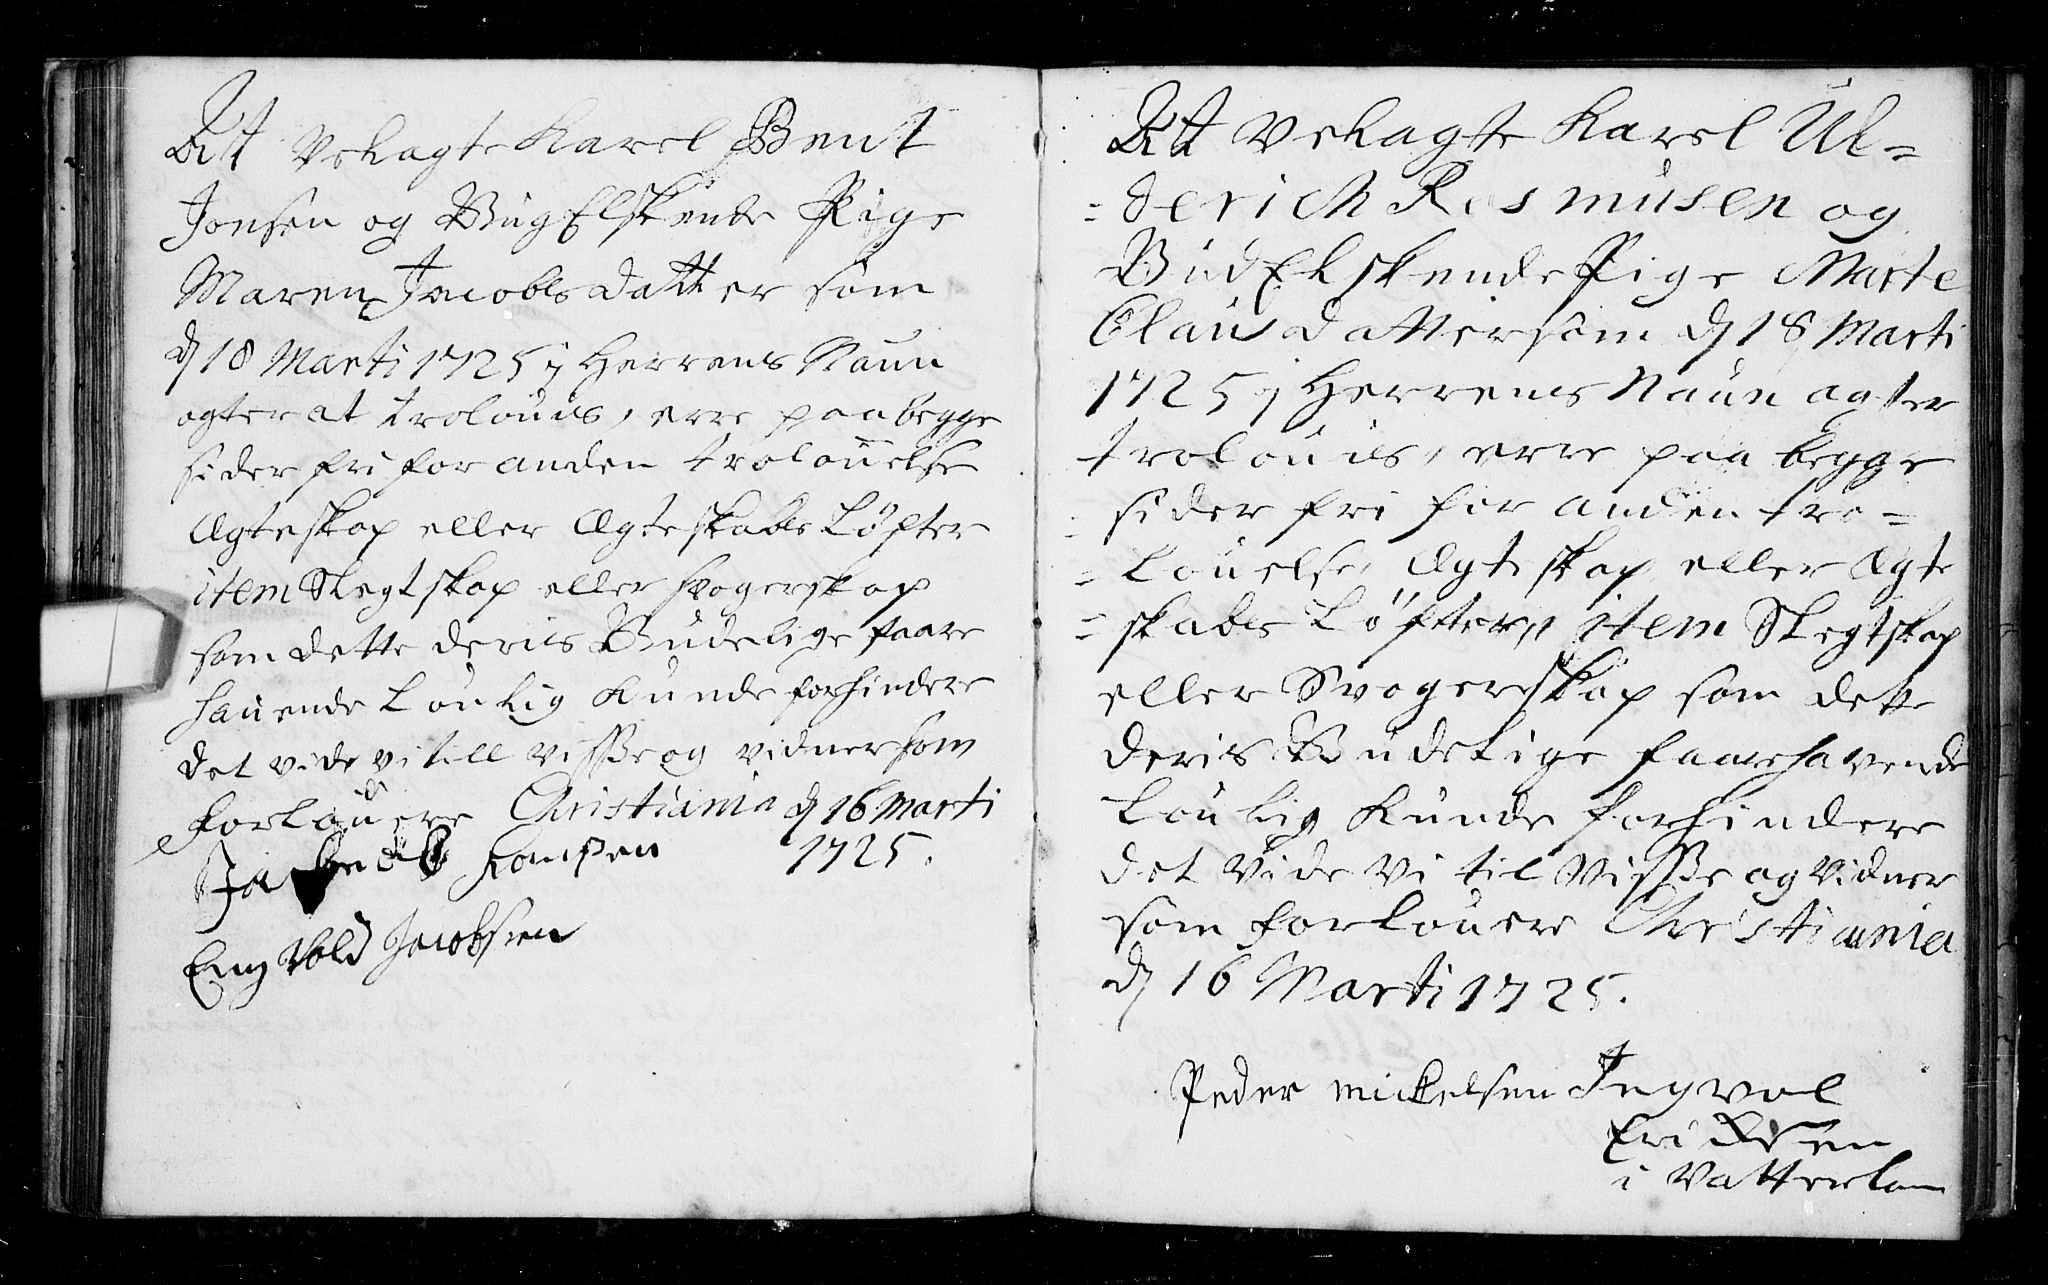 Att Velagte Karel Bent
Jonsen og Gugelskende Pige
Maren Jacobs datter som
d 18 Marti 1725 j Herrens Naun
agter at trolouis, erre paa begge
sider fri for anden trolouelse
Ægteskap eller Ægteskabs Løfter
item Slegtskap eller Svogerskap
som dette deris Gudelige faare
hauende Loulig Kunde forhindere
det vide vi till visße og vidner som
forlouere Christiania d 16 Marti
1725.
Jonßen
Eng Vold Jacobsen
Att Velagte Karel Ul=
=derich Rasmusen og
Gudelskende Pige Marte
Claus datter som d 18 Marti
1725 j Herrens Naun agter
trolouis, erre paa begge
sider fri for anden tro=
=Louelse, Ægteskap eller Ægte
=skabs Løfter, item Slegtskap
eller Svogerskap som dette
deris Gudelige faarehavende
Loulig Kunde forhindere
det vide vi til visße og vidner
som forlouere Christiania
d 16 Marti 1725.
Peder Mickelsen Ingvol
Ericksen
i Vatterlan